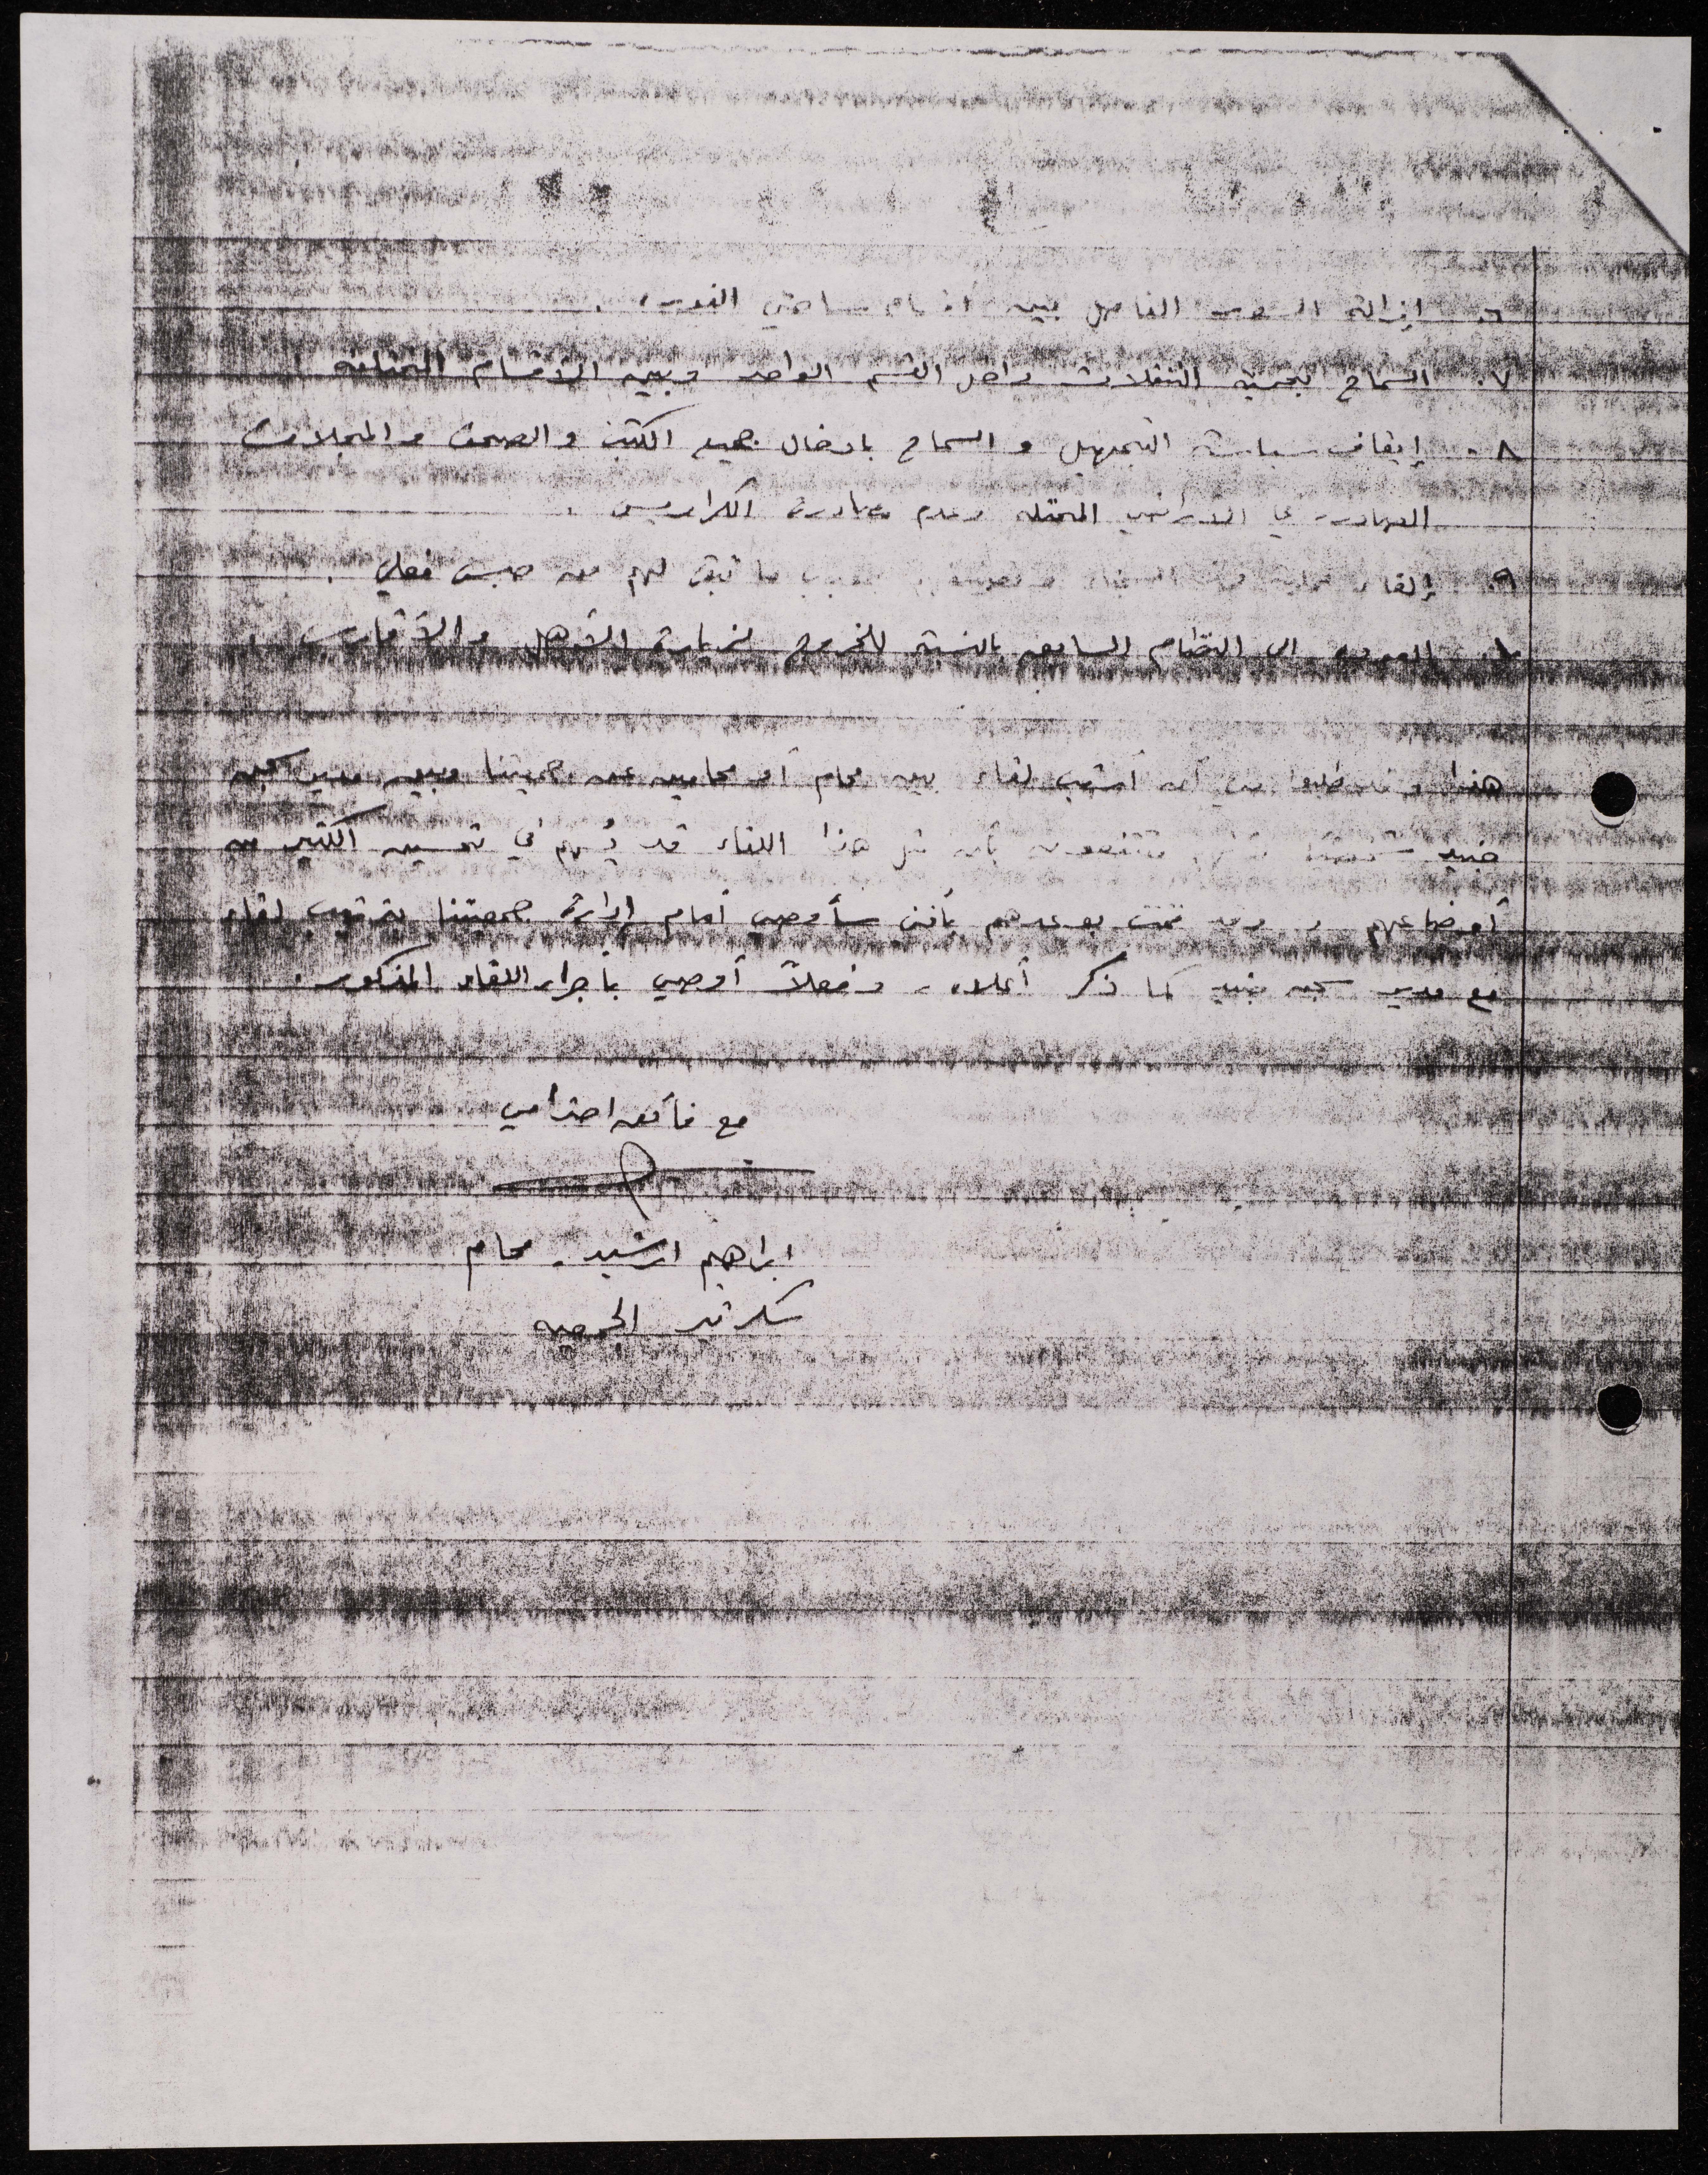 ٦. ازالة السور الفاصل بين ساحتي الفورة .
٧. السماح بحرية التنقلات داخل القسم الواحد وبين الأقسام المختلفة .
٨. إيقاف سياسة التجهيل و السماح بادخال جميع الكتب و الصحف و المجلات
الصادرة في الاراضي المحتلة وعدم مصادرة الكراريس .
٩. إلغاء ما تبقى لهم من حبس فعلي .
١٠. العودة الى النظام السابق بالنسبة للخروج لزيارة الأهل والأقارب .
هذا وقد طلبوا مني أن أرتب لقاء بين محام أو محامين عن جمعيتنا وبين مدير سجن
جنيد هذا اللقاء قد يُسهم في تحسين الكثير من
أوضاعهم . وقد قمت بوعدهم بأنني سأوصي أمام إدارة جمعيتنا بترتيب لقاء
مع مدير سجن جنيد كما ذكر أعلاه . وفعلاً أوصي باجراء اللقاء المذكور .
مع فائق احترامي
ابراهيم ارشيد . محام
سكرتير الجمعية